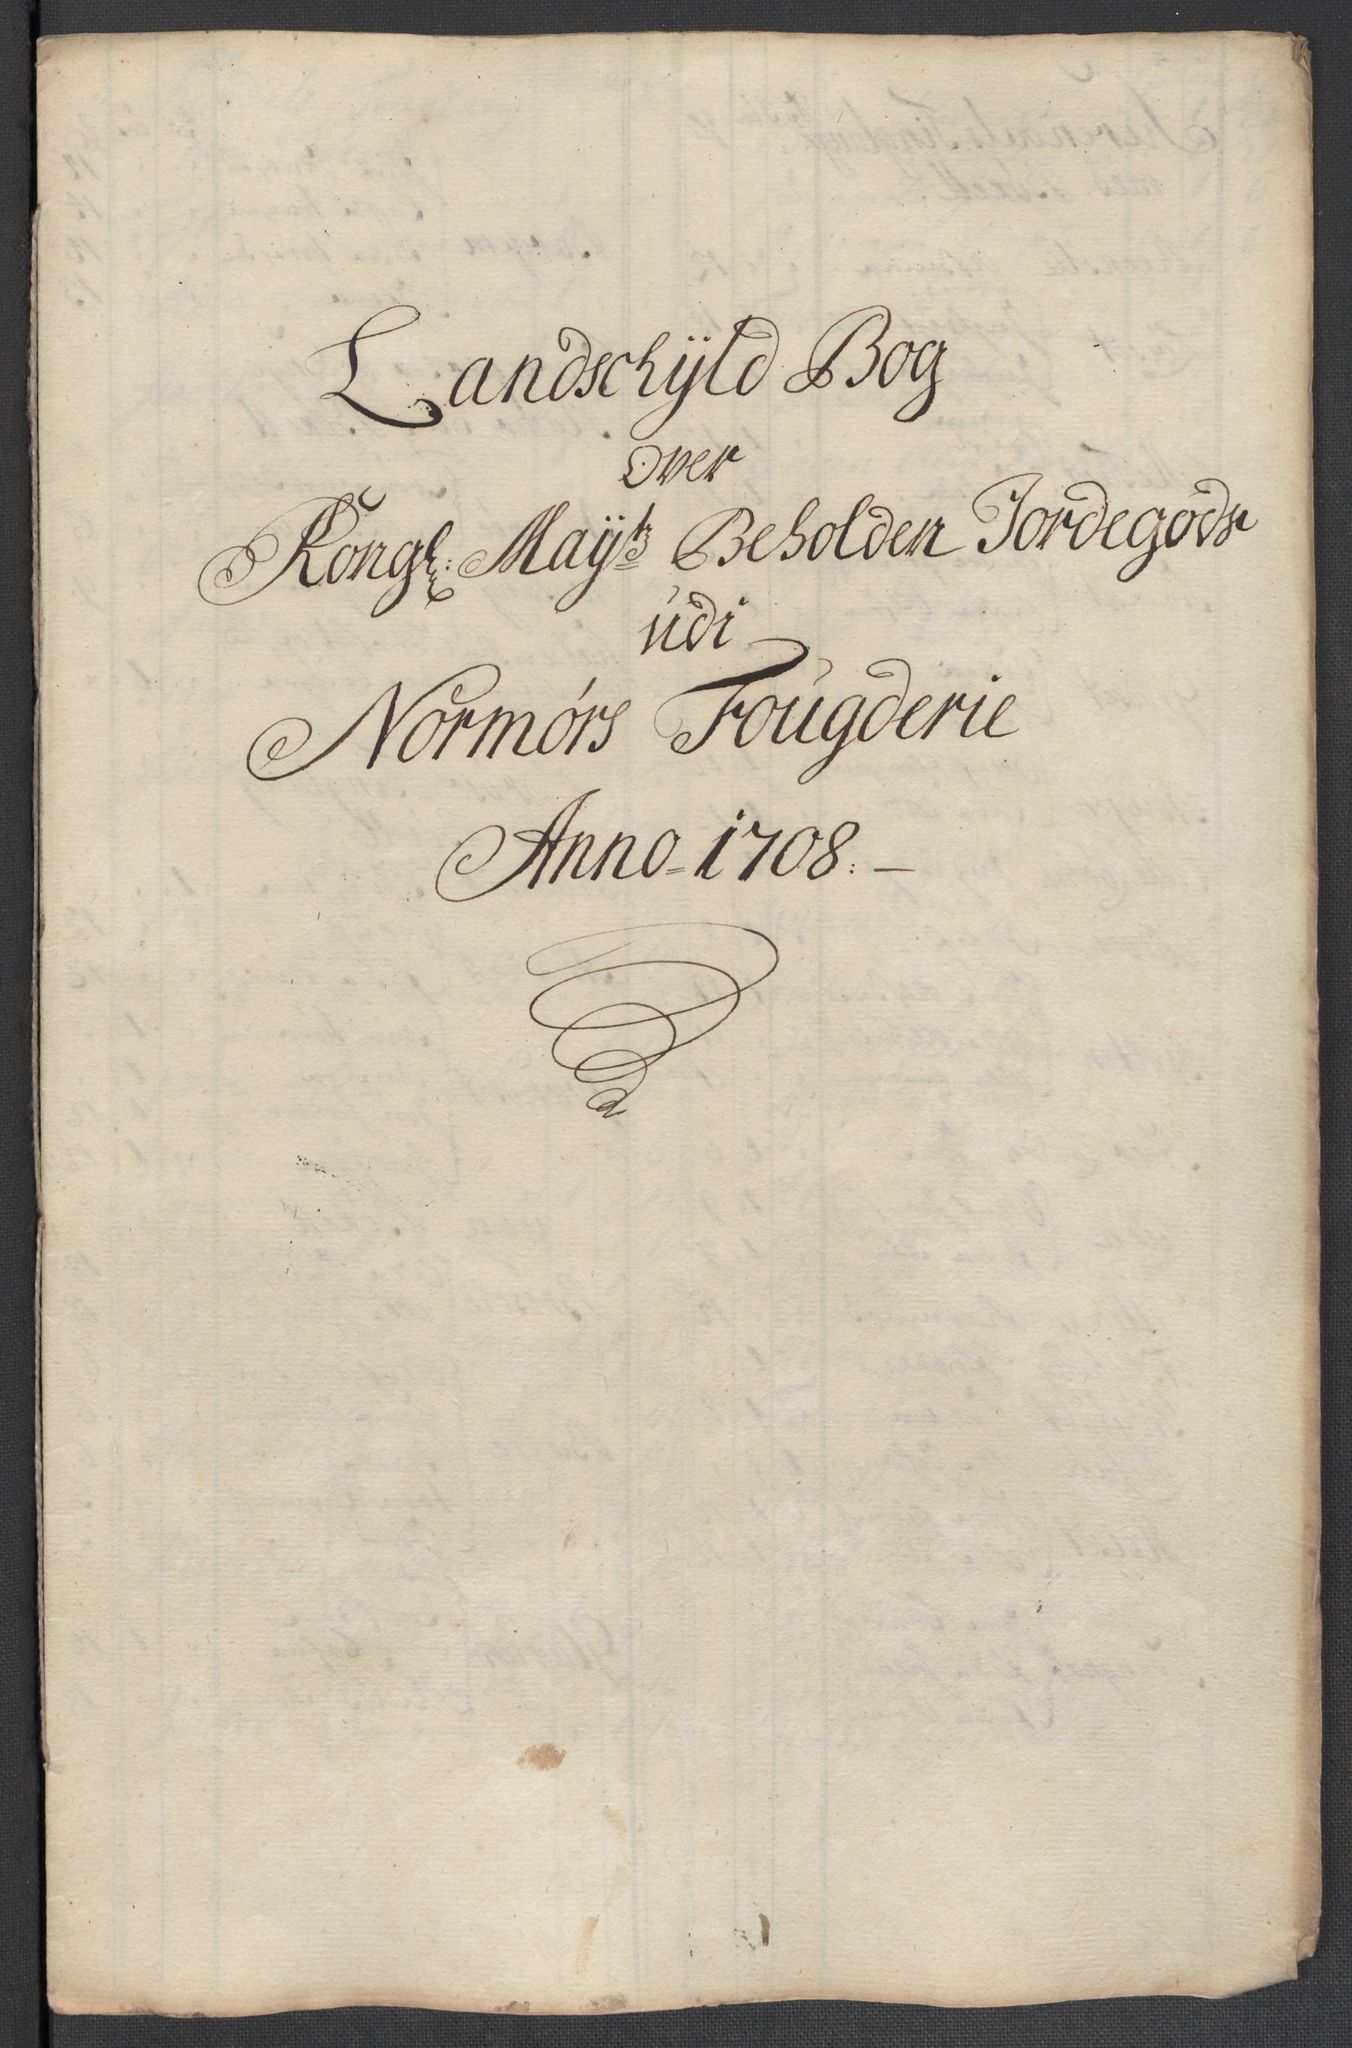 Landschÿld Bog
over
Kongl: Maÿtz Beholden Jordegods
udi
Normørs Fougderie
Anno 1708. —